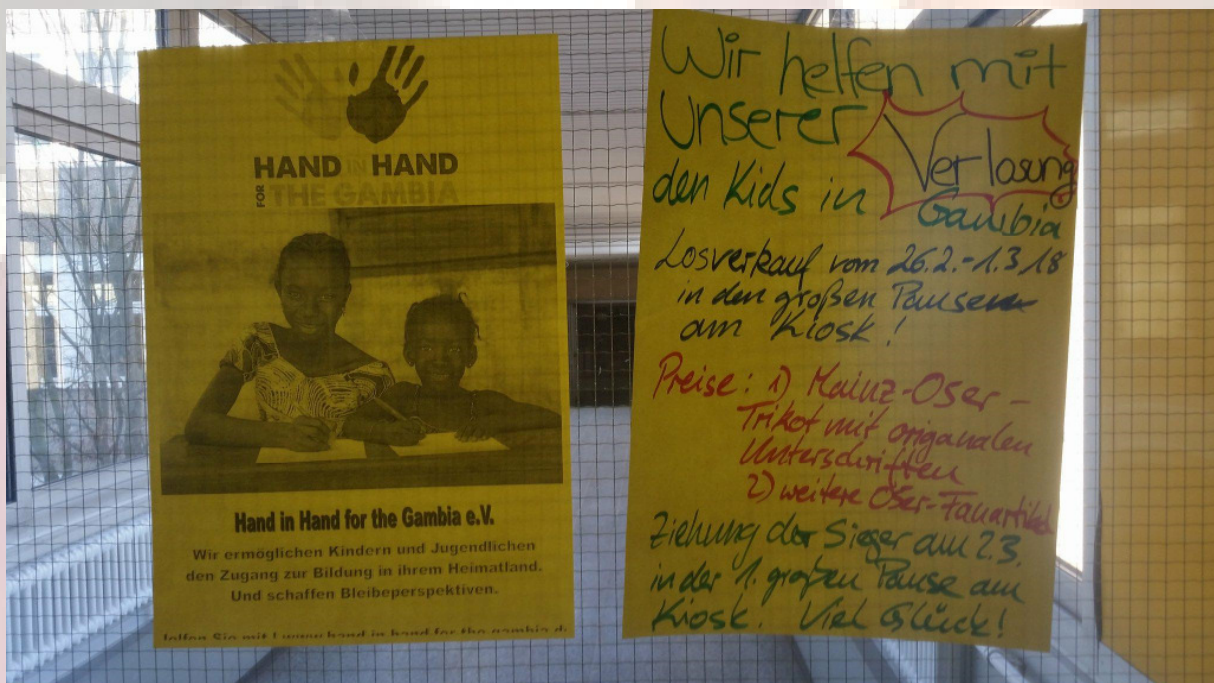 HAND IN HAND
FOR THE GAMBIA
Hand in Hand for the Gambia e.V.
Wir ermöglichen Kindern und Jugendlichen
den Zugang zur Bildung in ihrem Heimatland.
Und schaffen Bleibeperspektiven.
Helfen Sie mit! www.hand-in-hand-for-the-gambia.de
Wir helfen mit
Unserer Verlosung
den Kids in Gambia
Losverkauf vom 26.2.-1.3.18
in den großen Pausen
am Kiosk!
Preise: 1) Mainz-05er-
Trikot mit origanalen
Unterschriften
2) weitere 05er-Fanartikel
Ziehung der Sieger am 2.3.
in der 1. großen Pause am
Kiosk. Viel Glück!